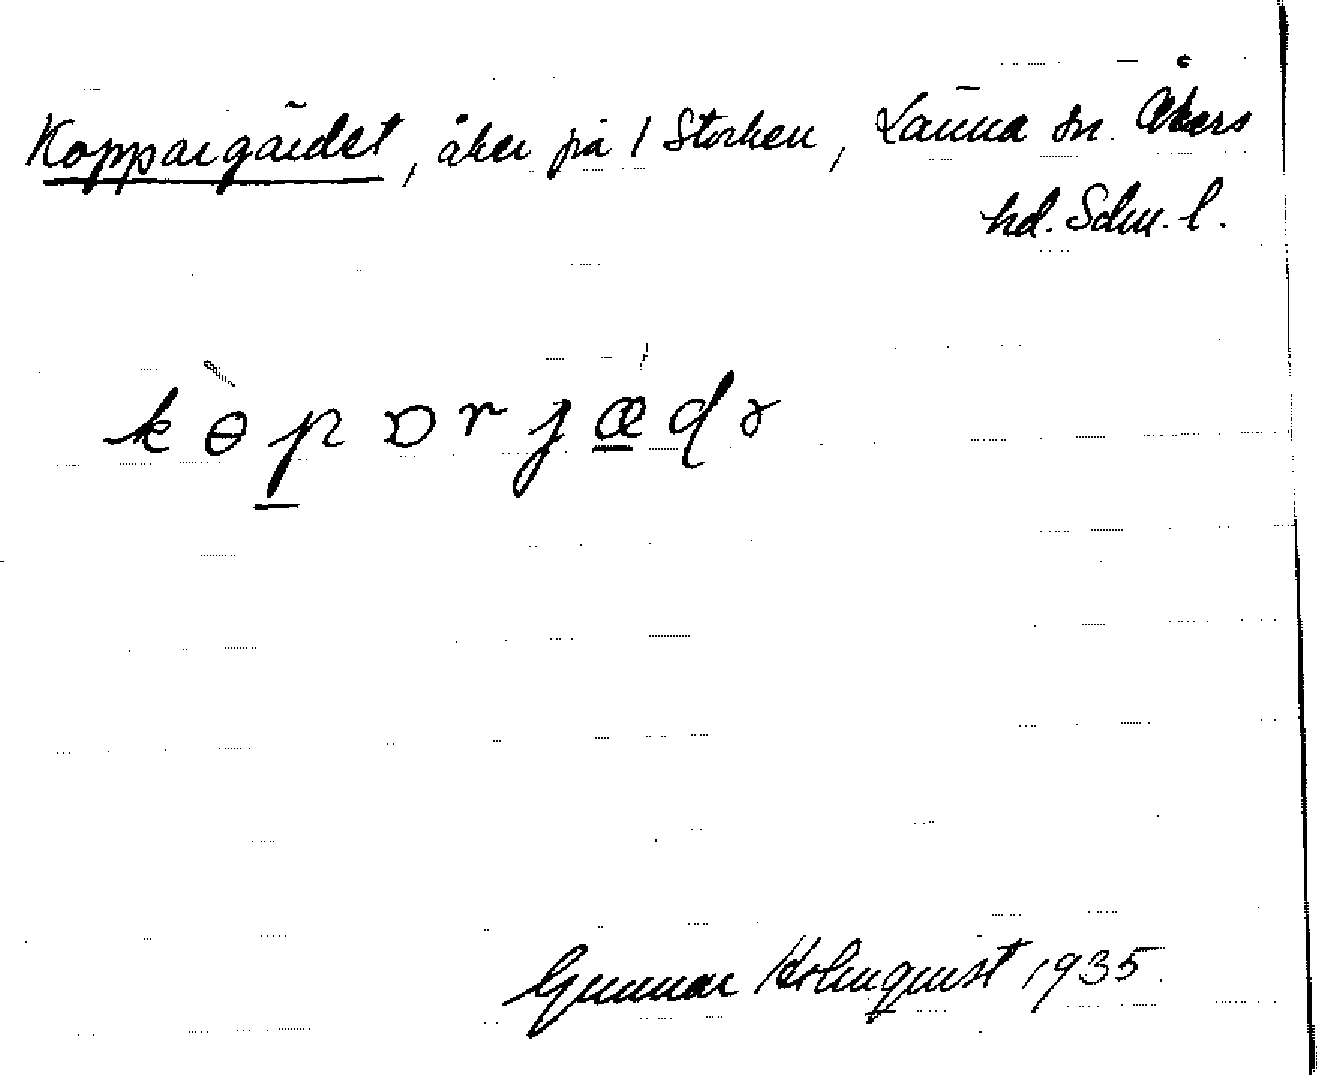 Koppargärdet, åker på 1 Storken, Länna sn. Åkers
hd. Södm. l.
kɵ̀pɒrjæ̲dɘ
Gunnar Holmquist 1935.